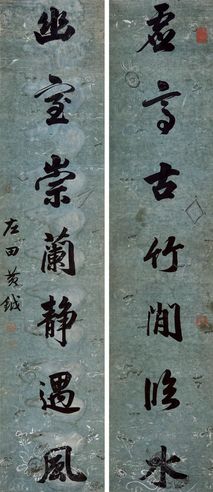 虛亭古竹閒臨水
幽室崇蘭静遇風
左田黄鉞